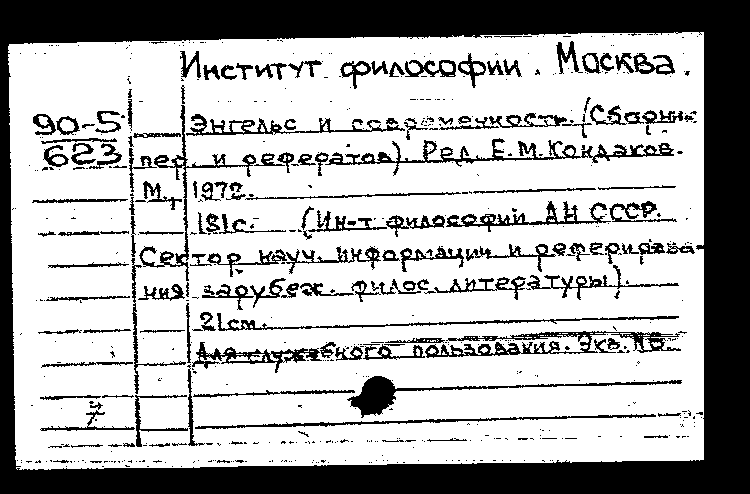 Институт философии. Москва.
90-5
623
Энгельс и современность. (Сборник
пер. и рефератов). Ред. Е.М.Кондаков.
М., 1972.
181с. (Ин-т философий АН СССР.
Сектор науч. информации и реферирова-
ния зарубеж. филос. литературы).
21см.
Для служебного пользования. Экз. №